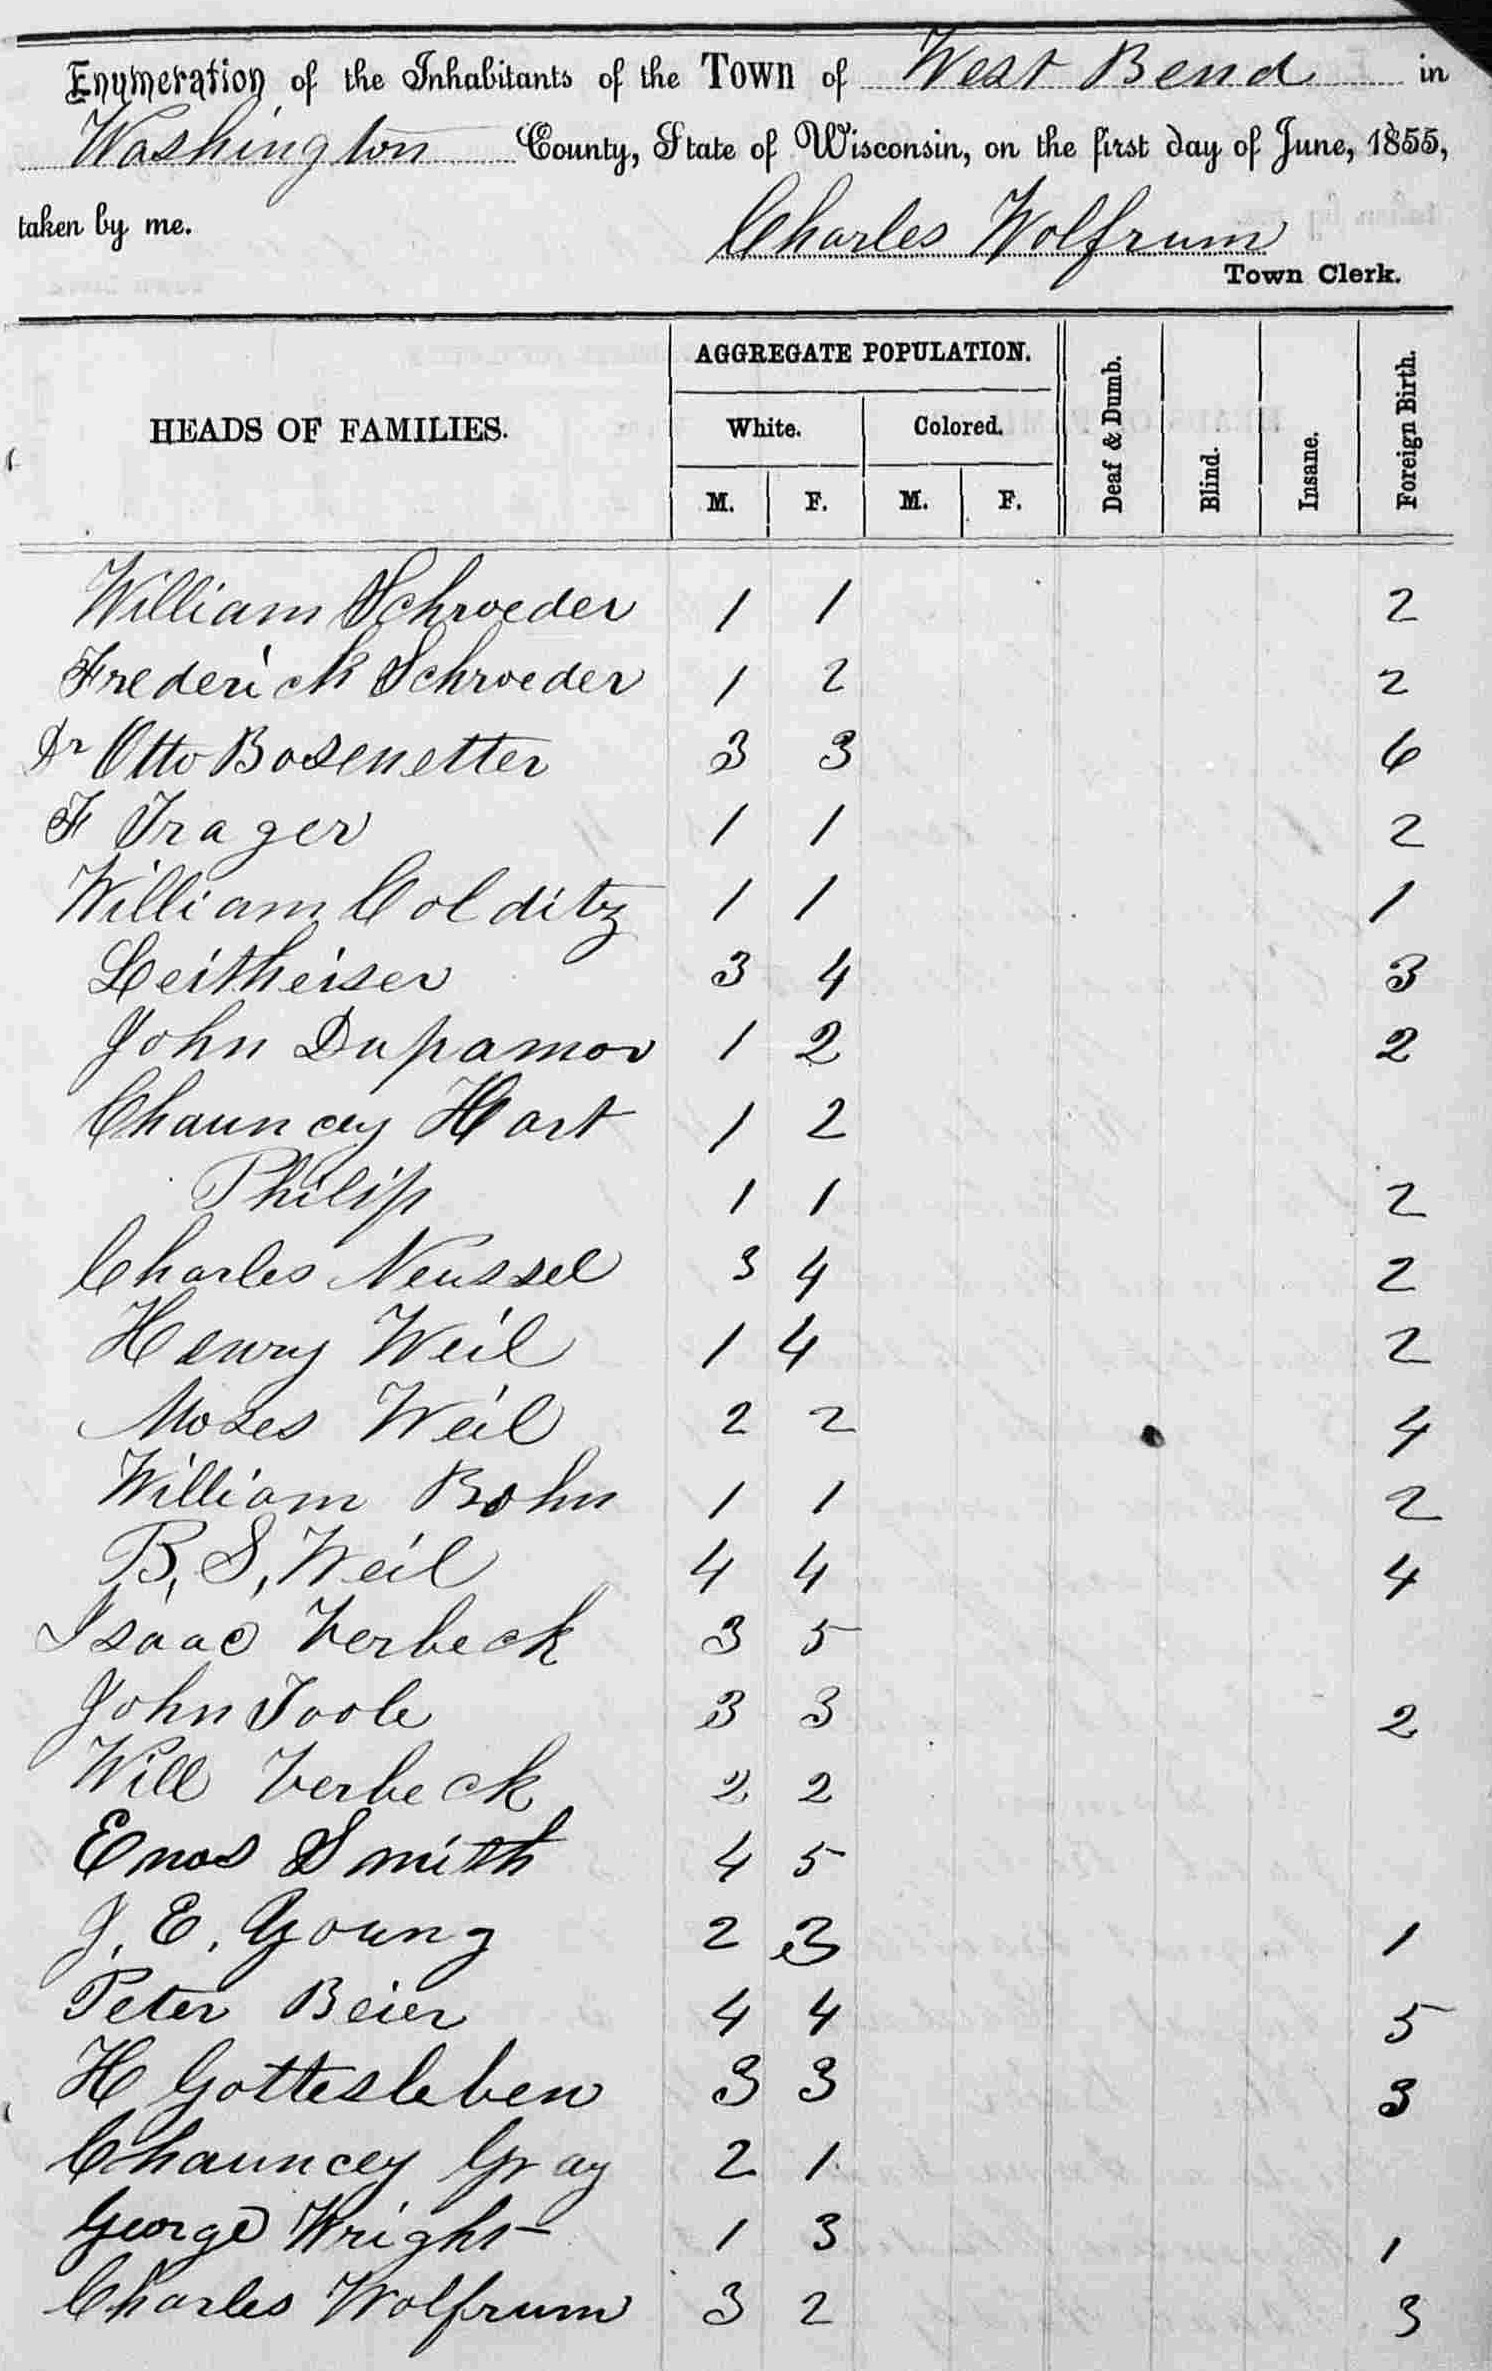 Enumeration of the Inhabitants of the Town of West Bend in
Washington County, State of Wisconsin, on the first day of June, 1855,
taken by me. Charles Wolfrum
Town Clerk.
HEADS OF FAMILIES. AGGREGATE POPULATION. Deaf & Dumb. Blind. Insane. Foreign Birth.
White. Colored.
M. F. M. F.
William Schroeder 1 1 2
Frederick Schroeder 1 2 2
Dr Otto Bosenetter 3 3 6
F Trager 1 1 2
William Colditz 1 1 1
Leitheiser 3 4 3
John Dupamor 1 2 2
Chauncey Hart 1 2
Philip 1 1 2
Charles Neussel 3 4 2
Henry Weil 1 4 2
Moses Weil 2 2 4
William Bohn 1 1 2
B, S, Weil 4 4 4
Isaac Verbeck 3 5
John Toole 3 3 2
Will Verbeck 2 2
Enos Smith 4 5
J. E. Young 2 3 1
Peter Beier 4 4 5
H Gottesleben 3 3 3
Chauncey Gray 2 1
George Wright 1 3 1
Charles Wolfrum 3 2 3